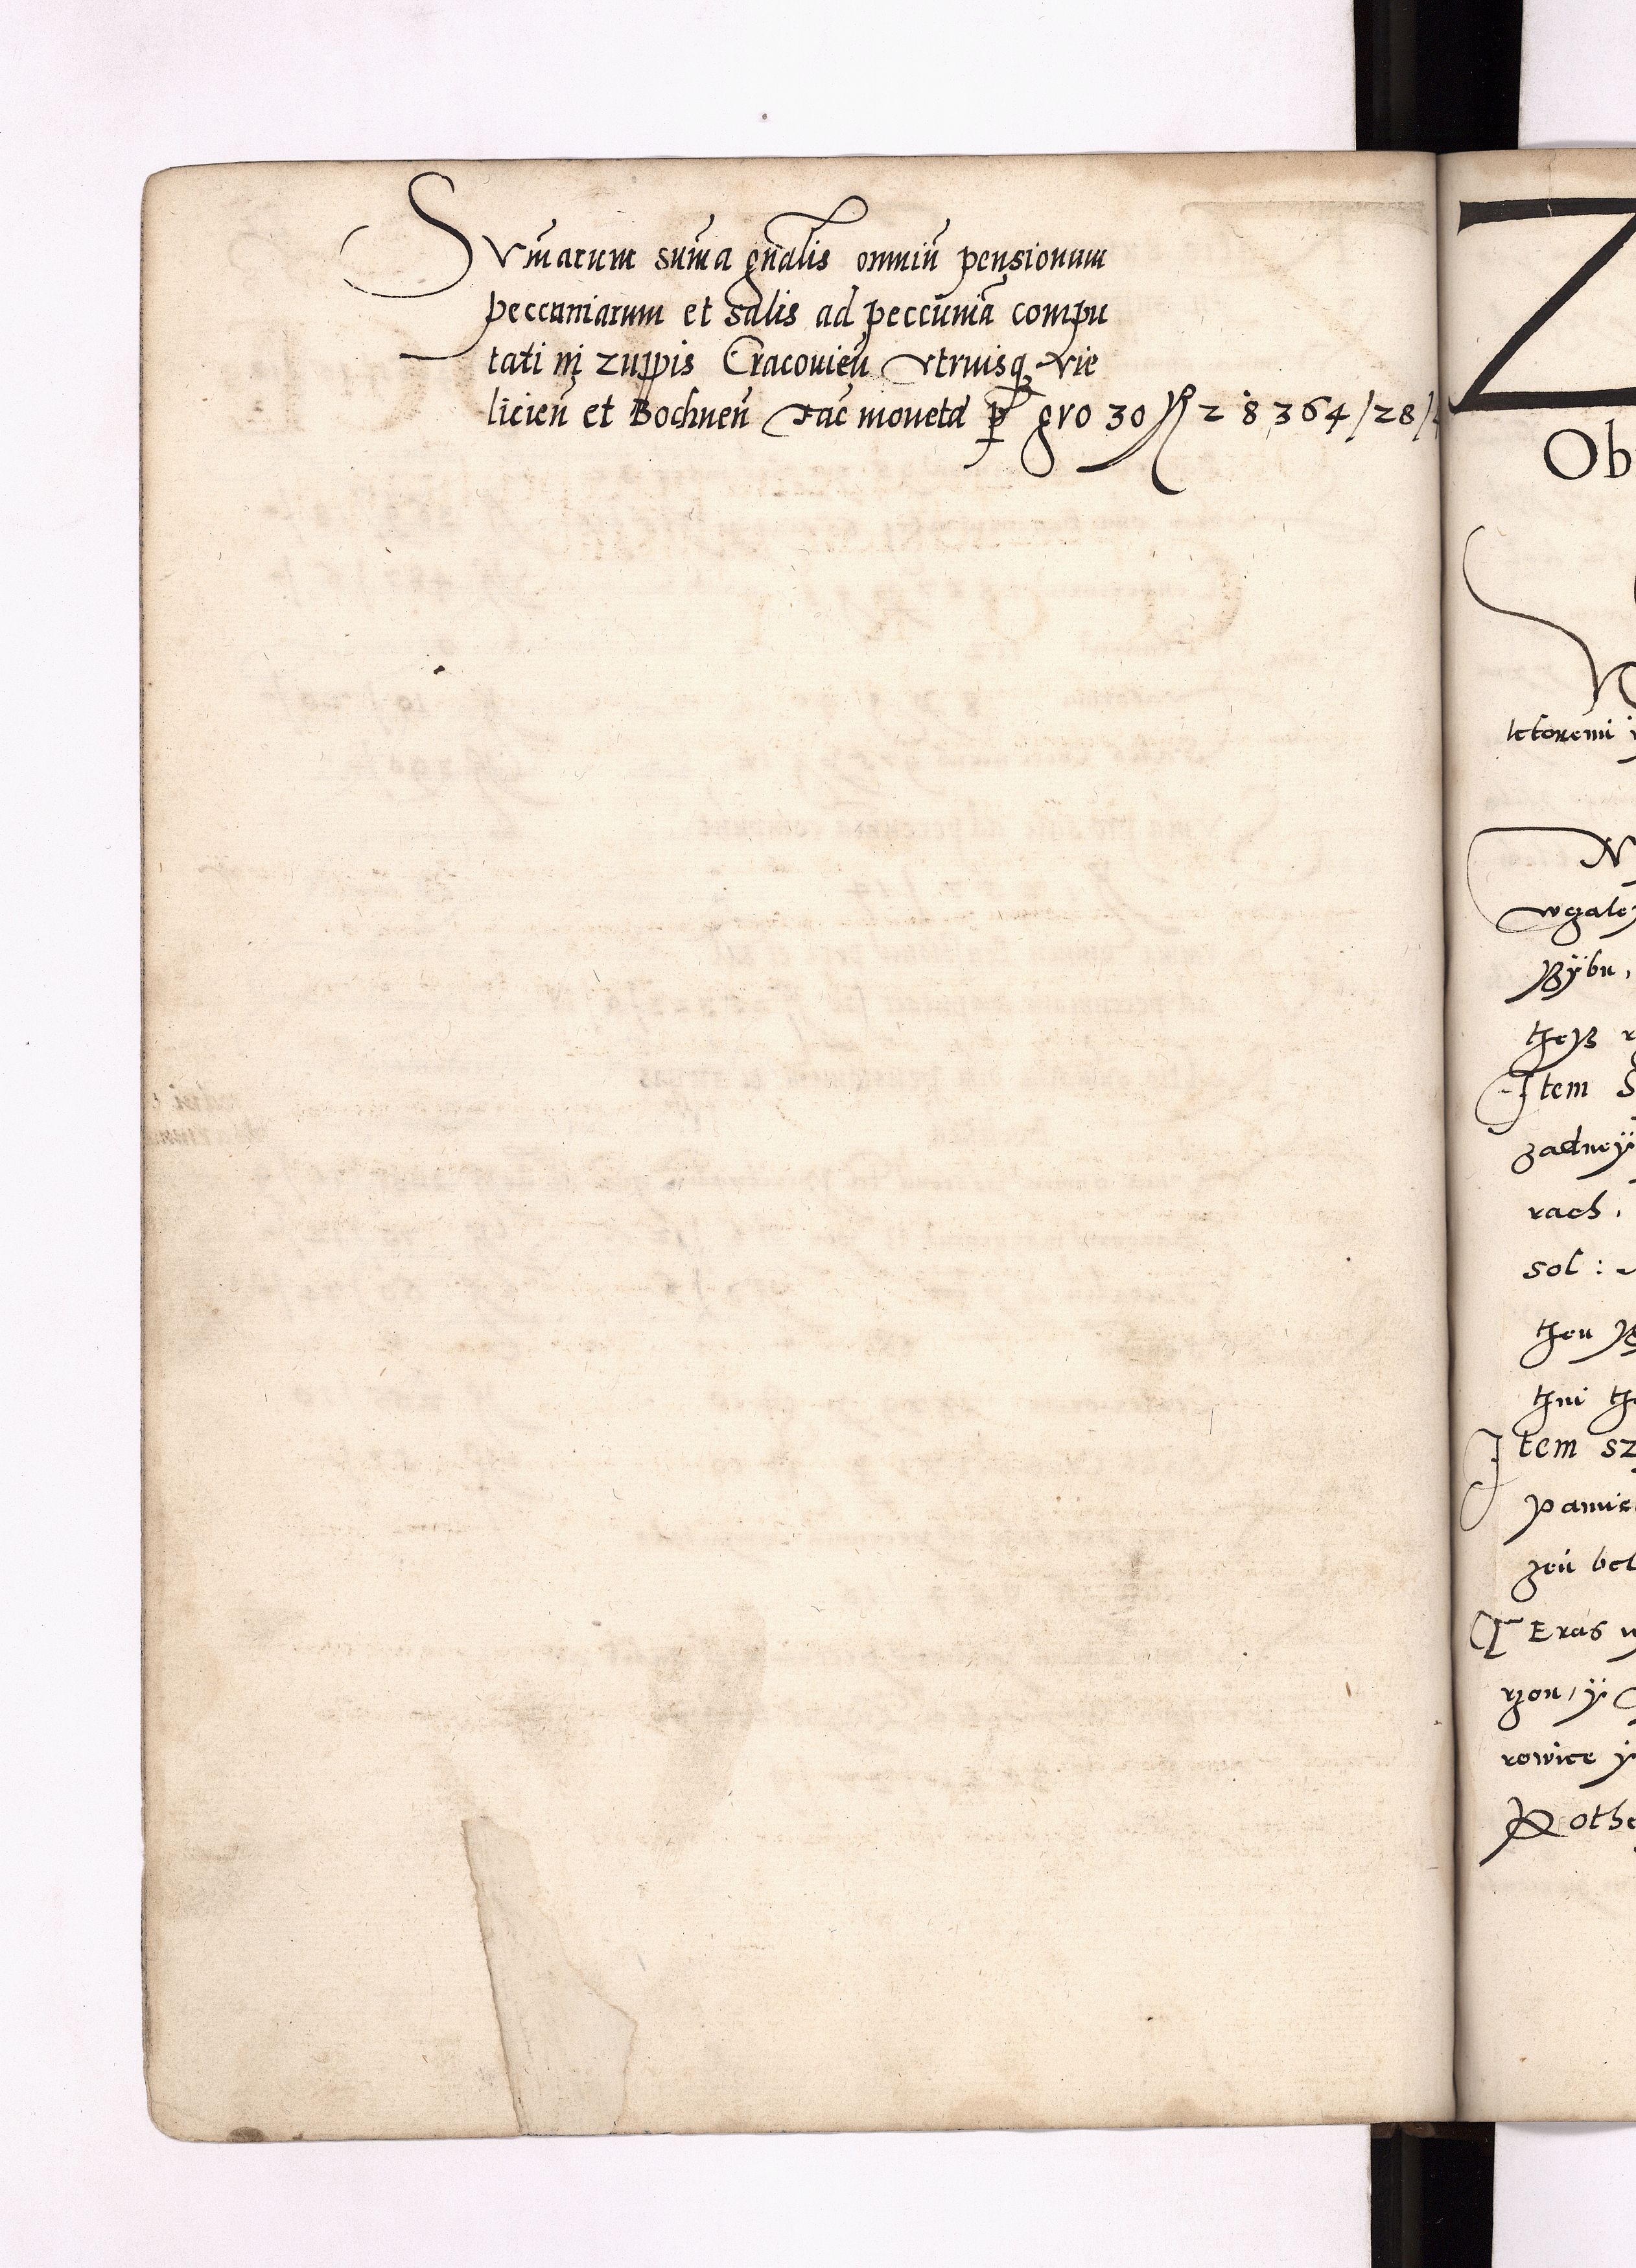 Sum̄arum sum̄a gn̄alis omniū pensionum
peccuniarum et salis ad peccuniā compu
tati in zuppis Cracovien̄ vtruisq vie
licien̄ et Bochnen̄ fac̄ moneta p gro 30 28364/28/
Z
Ob
letoremi
N
wgale
Bÿbu,
theß
Item S
zadneÿ
rach,
sol:
then
thni th
Item sz
pamie
zen bel
Teras
rzon, ÿ
rowice ÿ
Pothe